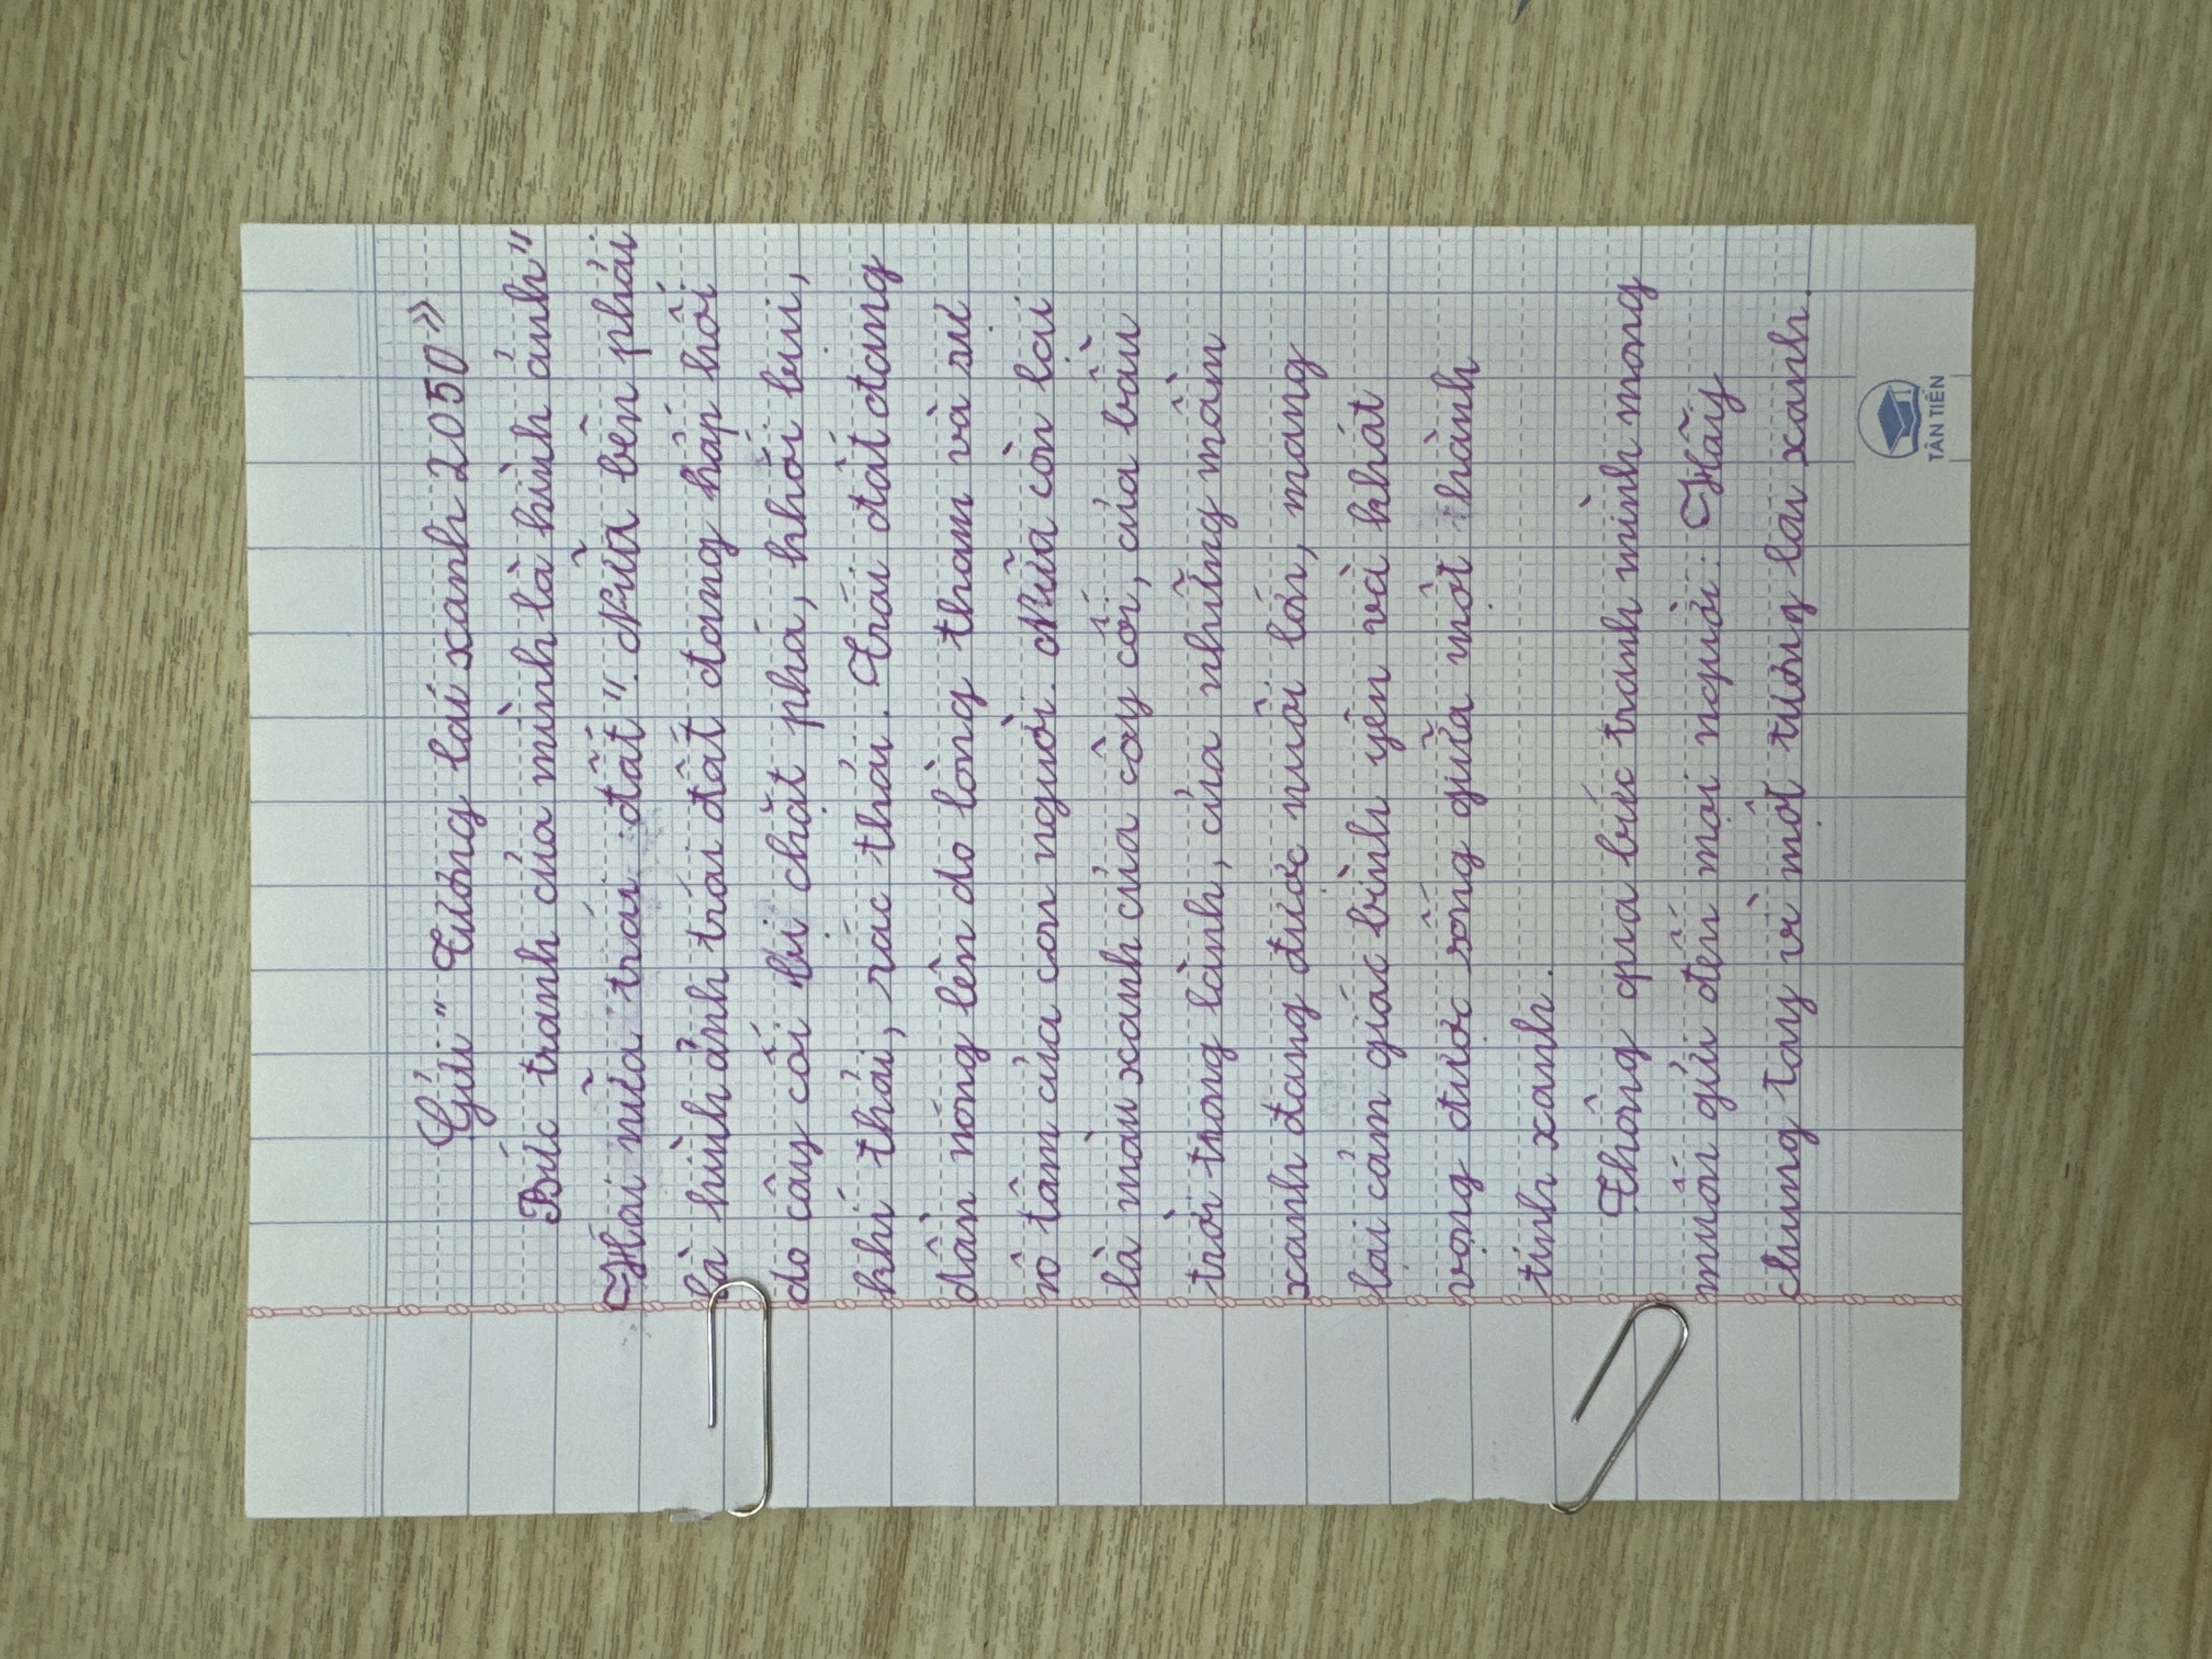 Gửi " Tương lai xanh 2050 »
Bức tranh của mình là hình ảnh "
Hai nửa trái đất ". Nửa bên phải
là hình ảnh trái đất đang hấp hối
do cây cối bị chặt phá, khói bụi,
khí thải, rác thải. Trái đất đang
dần nóng lên do lòng tham và sự
vô tâm của con người. Nửa còn lại
là màu xanh của cây cối, của bầu
trời trong lành, của những mầm
xanh đang được nuôi lớn, mang
lại cảm giác bình yên và khát
vọng được sống giữa một thành
tính xanh.
Thông qua bức tranh mình mong
muốn gửi đến mọi người: Hãy
chung tay vì một tương lai xanh.
TÂN TIẾN